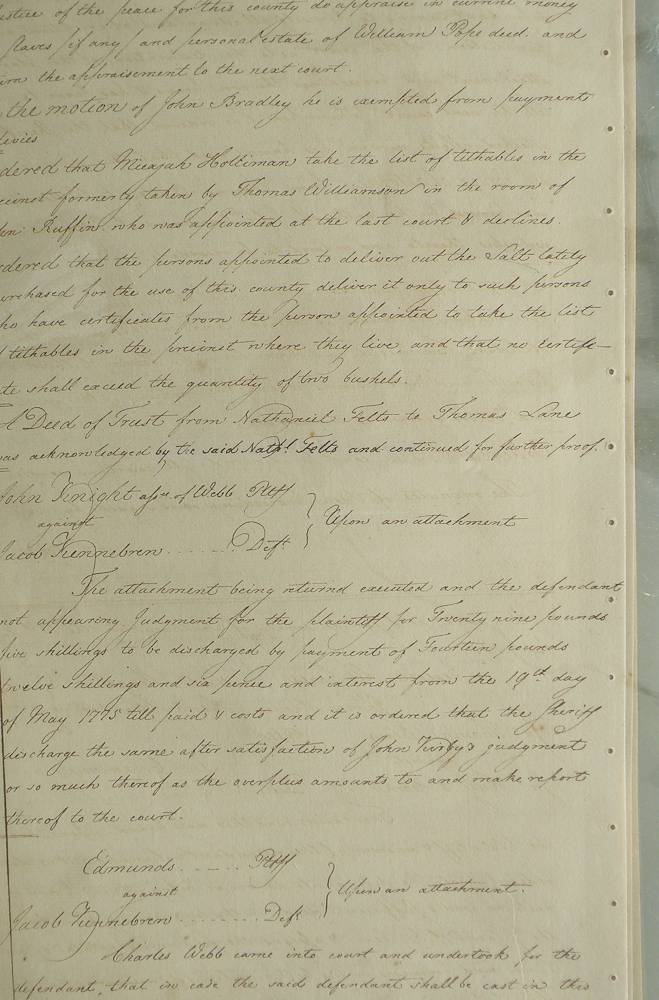 ustice of the peace for this county do appraise in current money
slaves (if any) and personal estate of William Pope decd. and
urn the appraisement to the next court.
the motion of John Bradley he is exempted from payment
levies
dered that Micajah Holliman take the list of tithables in the
ecinct formerly taken by Thomas Williamson in the room of
Ruffin who was appointed at the last court & declines.
rdered that the persons appointed to deliver out the Salt lately
urchased for the use of this county deliver it only to such persons
ho have certificates from the person appointed to take the list
f tithables in the precinct where they live, and that no certifi-
ate shall exceed the quantity of two bushels.
A Deed of Trust from Nathaniel Felts to Thomas Lane
was acknowledged by the said Nathl. Felts and continued for further proof.
John Knight assee. of Webb Pltff
against
Upon an attachment
Jacob Vennebren ....... Deft.
The attachment being returnd executed and the defendant
not appearing Judgment for the plaintiff for Twenty nine pounds
five shillings to be discharged by payment of Fourteen pounds
twelve shillings and six pence and interest from the 19th. day
of May 1775 till paid & costs and it is ordered that the Sheriff
discharge the same after satisfaction of John Kirby's judgment
or so much thereof as the overplus amounts to and make report
thereof to the court.
Edmunds ...... Pltff
against
Upon an attachment.
Jacob Vennebren ......... Deft.
Charles Webb came into court and undertook for the
defendant, that in case the said defendant shall be cast in this